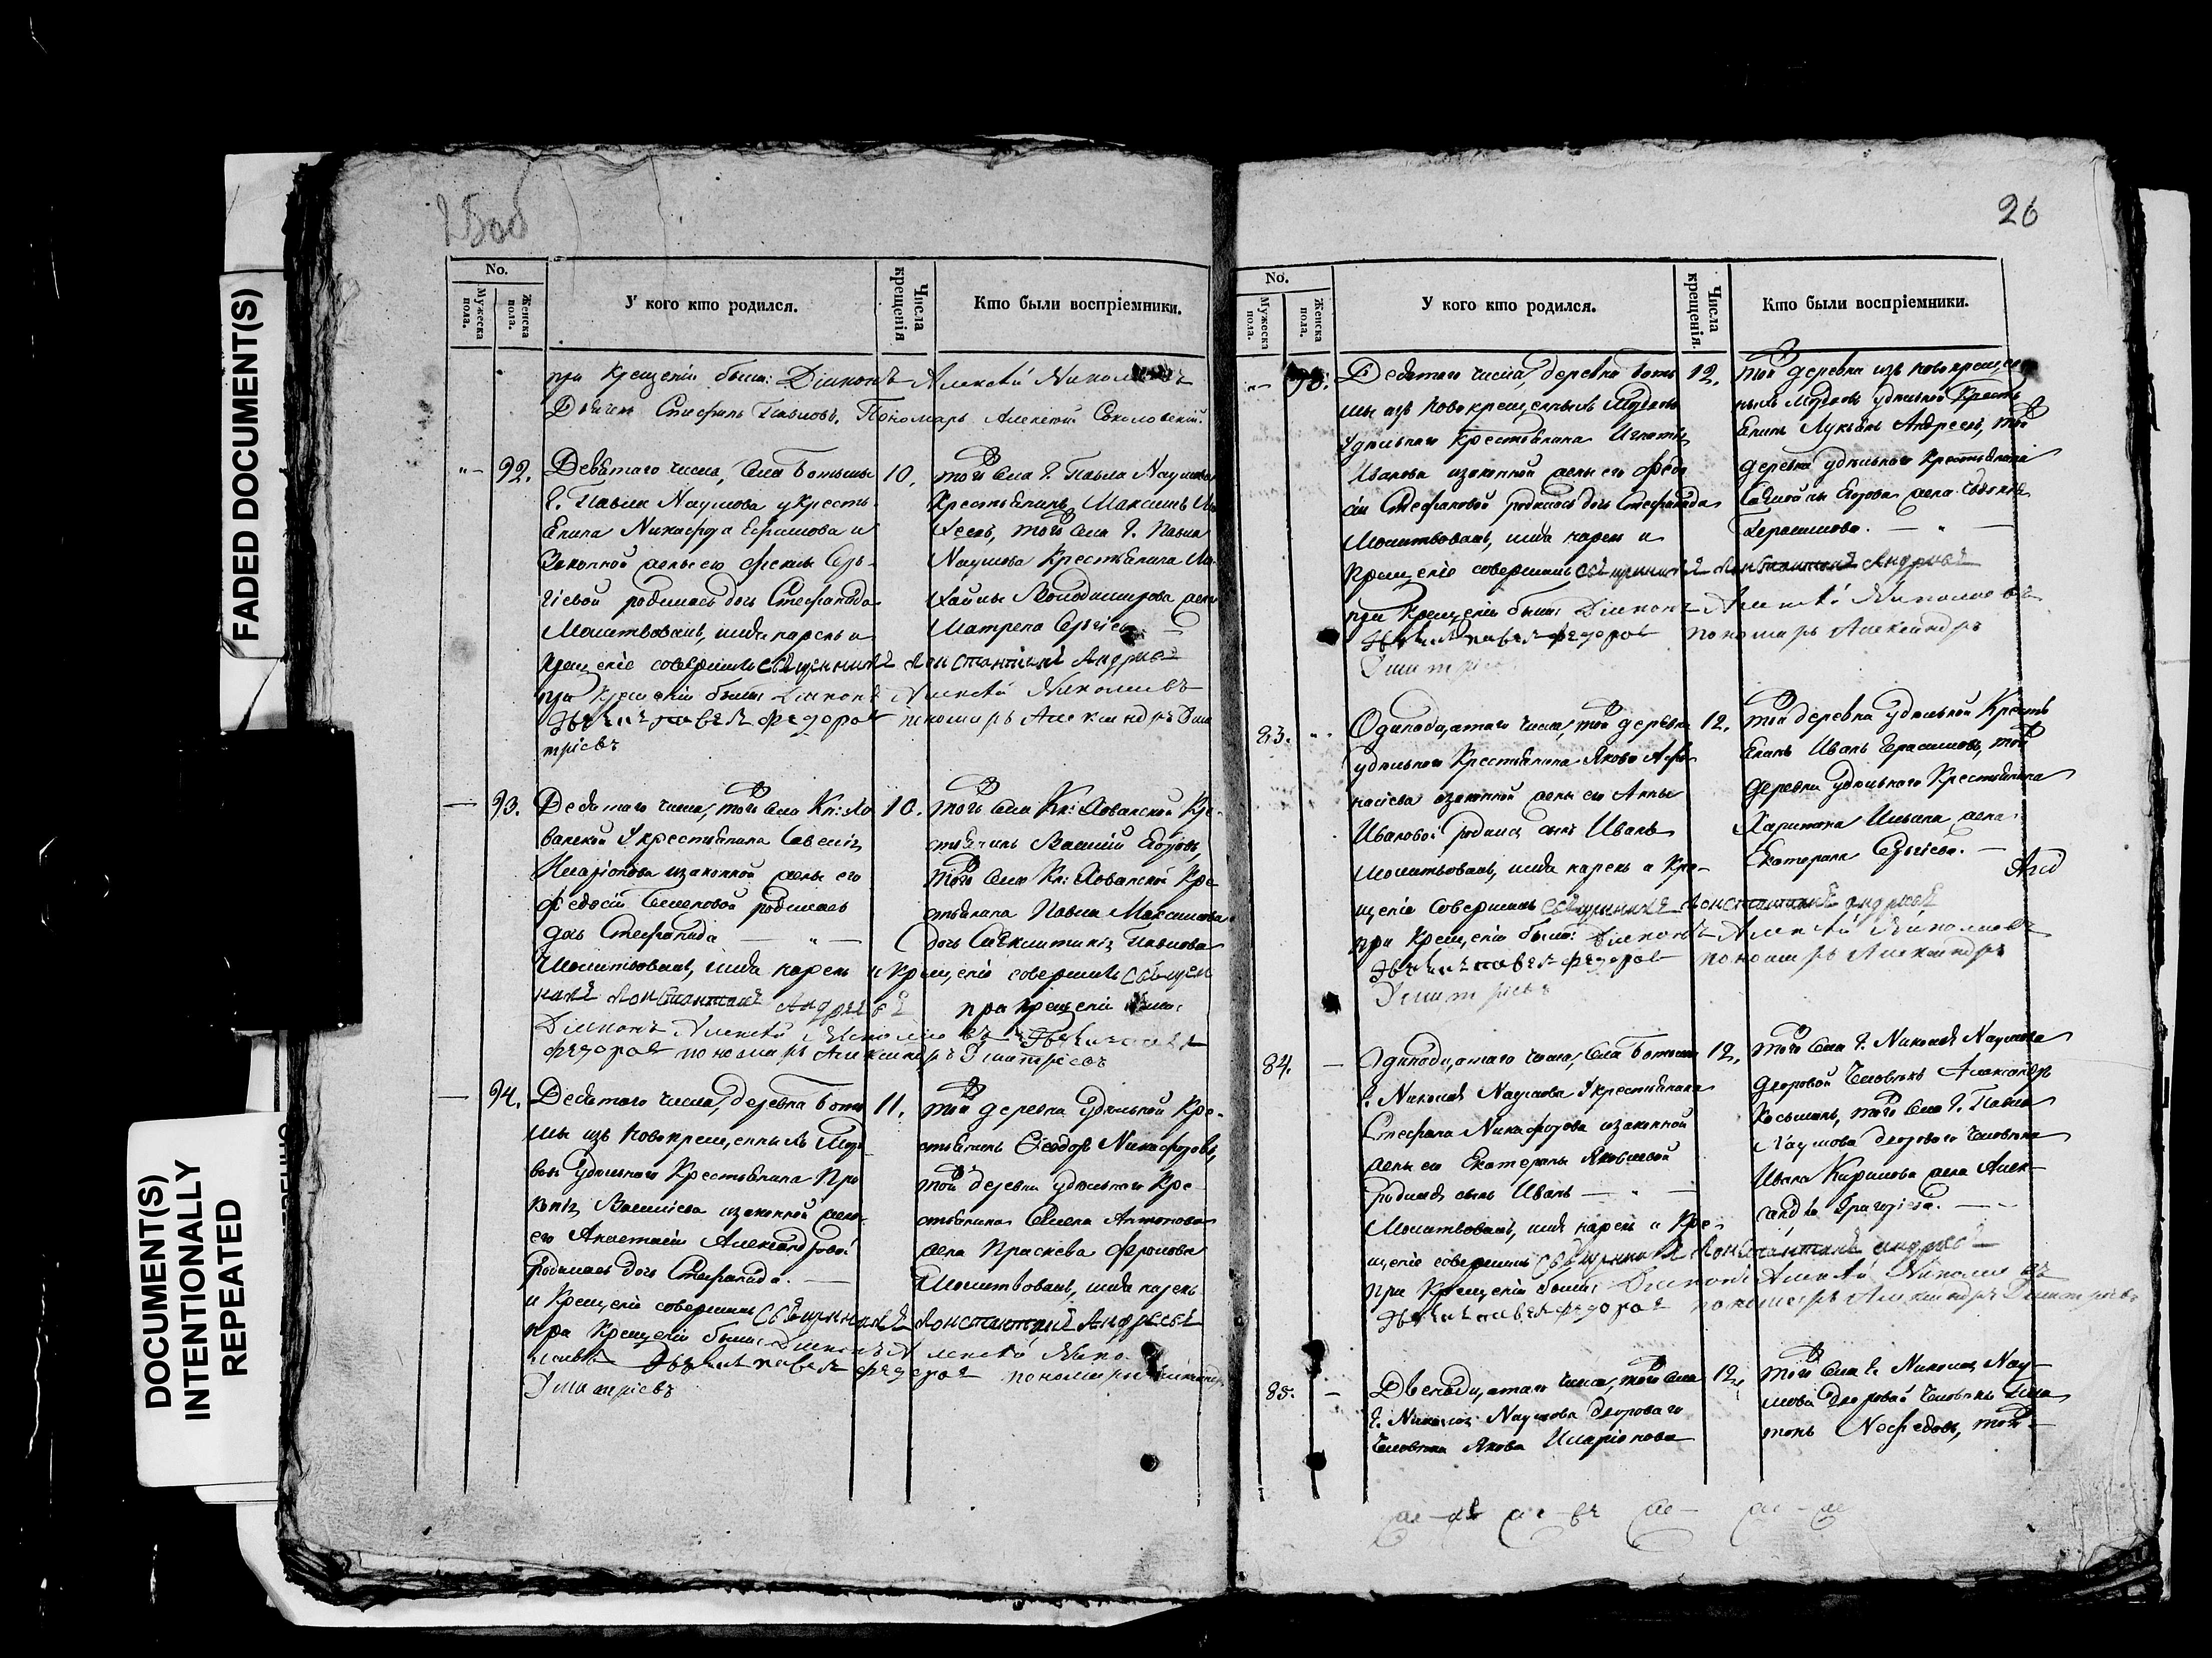 FADED DOCUMENT(S)
DOCUMENT(S)
INTENTIONALLY
REPEATED
25об
No.
Мужеска пола.
Женска пола.
У кого кто родился.
Числа крещенія
Кто были воспріемники.
при Крещеніи были: Діаконъ Алексѣй Николаевъ
Дьячекъ Стефанъ Павловъ, Пономарь Алексѣй Соколовскій.
92. Девятаго числа, села Ботьмы
Г. Павла Наумова у кресть
янина Никифора Ефимова и
Законной жены его Феклы Сер-
гіевой родилась дочь Стефанида
Молитвовалъ, имя нарекъ и
крещеніе совершилъ священникъ Константинъ Андреевъ
при крещеніи были Діаконъ Алексѣй Николаевъ
павелъ федоровъ пономарь Александръ Дми
тріевъ
10. того села Г. Павла Наумова
Крестьянинъ Максимъ
того села Г. Павла
Наумова Крестьянина
Володимирова жена
Матрена Сергіева
93. Девятаго числа, того села Кн: Хо
ванской у крестьянина Савелія
Иларіонова и законной жены его
федосіи Семеновой родилась
дочь Стефанида
Молитвовалъ, имя нарекъ и крещеніе совершилъ священ
никъ Константинъ Андреевъ при крещеніи были
Діаконъ Алексѣй Николаевъ
федоровъ пономарь Александръ Дмитріевъ
10. того села Кн: Хованской Кре-
стьянинъ Василій Егоровъ,
того села Кн: Хованской Кре
стьянина Павла Максимова
дочь Павлова
94. Девятаго числа, деревни Боть
мы изъ новокрещенныхъ Морд
вовъ удѣльнаго Крестьянина Про
копія Василіева и законной жены
его Анастасіи Александровой
родилась дочь Стефанида.
и Крещеніе совершилъ Священникъ Константинъ Андреевъ
при Крещеніи были Діаконъ Алексѣй Нико
лаевъ павелъ федоровъ пономарь Александръ
Дмитріевъ
11. той деревни удѣльной Кре-
стьянинъ Феодоръ Никифоровъ,
той деревни удѣльнаго Кре
стьянина Семена Антонова
жена Праскева
Молитвовалъ, имя нарекъ
26
No.
Мужеска пола.
Женска пола.
У кого кто родился.
Числа крещенія.
Кто были воспріемники.
Девятаго числа, деревни Боть
мы изъ новокрещенныхъ Мордвовъ
удѣльнаго Крестьянина Игнатія
Иванова и законной жены его Федо
сіи Стефановой родилась дочь Стефанида
Молитвовалъ, имя нарекъ и
крещеніе совершилъ священникъ Константинъ Андреевъ
при Крещеніи были Діаконъ Алексѣй Николаевъ
павелъ федоровъ пономарь Александръ
Дмитріевъ
12. той деревни изъ новокрещен
ныхъ Мордвовъ удѣльной Кресть
янинъ Лукьянъ Андреевъ, той
деревни удѣльнаго Крестьянина
Егорова жена
Герасимова.
83. Одинадцатаго числа, той деревни
удѣльнаго Крестьянина Якова Афа
насіева и законной жены его Анны
Ивановой родился сынъ Иванъ
Молитвовалъ, имя нарекъ и Кре-
щеніе Совершилъ священникъ Константинъ андреевъ
при Крещеніи были: Діаконъ Алексѣй Николаевъ
павелъ федоровъ пономарь Александръ
Дмитріевъ
12. той деревни удѣльной Кресть
янинъ Иванъ Герасимовъ, той
деревни удѣльнаго Крестьянина
Харитона жена
Екатерина Сергіева.
84. Одинадцатаго числа, села Ботьмы
Г. Николая Наумова у крестьянина
Стефана Никифорова и законной
жены его Екатерины Яковлевой
родился сынъ Иванъ
Молитвовалъ, имя нарекъ и Кре-
щеніе совершилъ Священникъ Константинъ андреевъ
при Крещеніи были: Діаконъ Алексѣй Николаевъ
павелъ федоровъ пономарь Александръ Дмитріевъ
12. того села Г. Николая Наумова
дворовой Человѣкъ Александръ
Косьминъ, того села Г. Павла
Наумова двороваго Человѣка
Ивана Кирилова жена Алек-
сандра Григорьева.
85. Двенадцатаго числа, того села
Г. Николая Наумова двороваго
Человѣка Якова Иларіонова
12. того села Г. Николая Нау-
мова дворовой Человѣкъ Пла
тонъ Нефедовъ, того